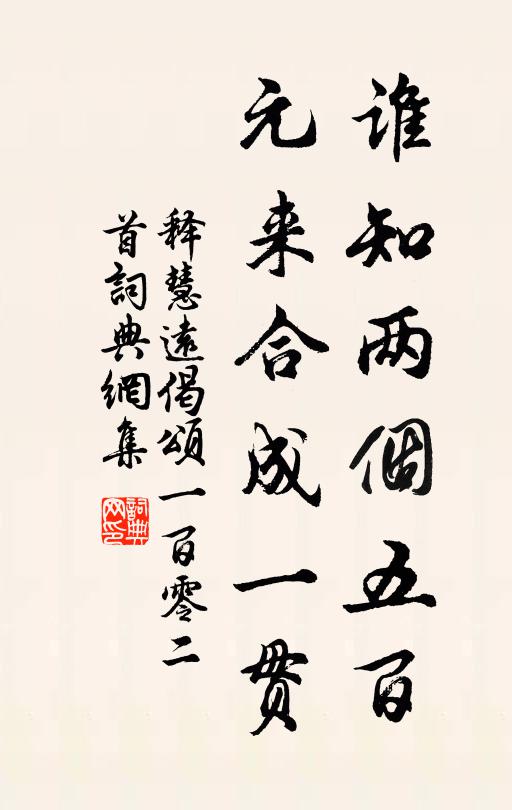 谁知两個五百
元来合成一贯
释慧遠偈頌一百零二
首詞典網集
詞典
网印